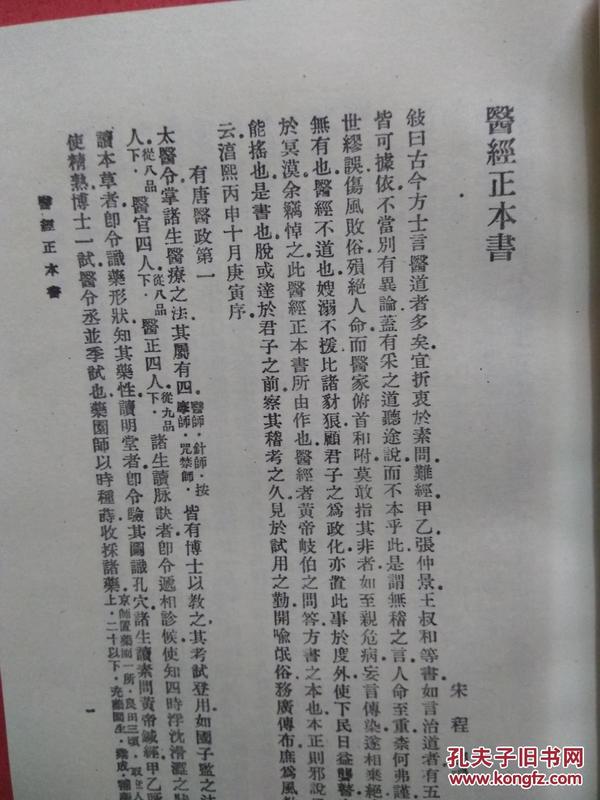 醫經正本書
宋 程
敍曰古今方士言醫道者多矣宜折衷於素問難經甲乙張仲景王叔和等書如言治道者有五
皆可據依不當別有異論蓋有采之道聽途說而不本乎此是謂無稽之言人命至重柰何弗謹
世繆誤傷風敗俗殞絕人命而醫家俯首和附莫敢指其非者如至親危病妄言傳染遂相棄絕
無有也醫經不道也嫂溺不援比諸豺狼顧君子之爲政化亦置此事於度外使下民日益聾瞽
於冥漠余竊悼之此醫經正本書所由作也醫經者黃帝岐伯之問答方書之本也本正則邪說
能搖也是書也脫或達於君子之前察其稽考之久見於試用之勤開喩氓俗務廣傳布庶爲風
云淳熙丙申十月庚寅序
有唐醫政第一
太醫令掌諸生醫療之法其屬有四醫師·針師·按摩師·咒禁師·皆有博士以敎之其考試登用如國子監之法
人從八品下·醫官四人從八品下·醫正四人從九品下·諸生讀脉訣者卽令遞相診候使知四時浮沈滑澀之狀
讀本草者卽令識藥形狀知其藥性讀明堂者卽令驗其圖識孔穴諸生讀素問黃帝鍼經甲乙脈
使精熟博士一試醫令丞並季試也藥園師以時種蒔收採諸藥京師置藥園一所·良田三頃·取庶人上·二十以下·充藥園生·業成·補藥
醫經正本書
一
孔夫子旧书网